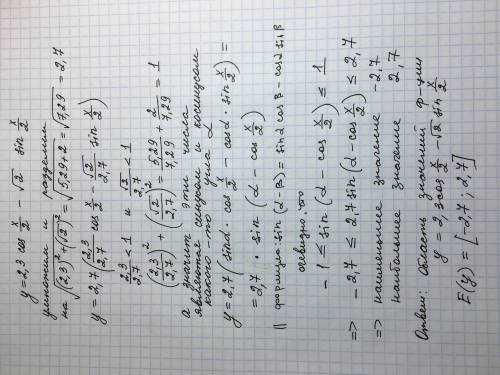 y = 2,3 cos x/2 − √2 sin x/2
умножим и разделим
на √((2,3)² + (√2)²) = √(5,29+2) = √7,29 = 2,7
y = 2,7 (2,3/2,7 cos x/2 − √2/2,7 sin x/2)
2,3/2,7 < 1 и √2/2,7 < 1
(2,3/2,7)² + (√2/2,7)² = 5,29/7,29 + 2/7,29 = 1
а значит эти числа
являются синусом и косинусом
какого-то угла α
y = 2,7 (sinα · cos x/2 − cosα · sin x/2) =
= 2,7 · sin (α − cos x/2)
|| формула · sin (α − β) = sinα cosβ − cosα sinβ
очевидно, что
−1 ≤ sin (α − cos x/2) ≤ 1
=> −2,7 ≤ 2,7 sin (α − cos x/2) ≤ 2,7
=> наименьшее значение −2,7
наибольшее значение 2,7
Ответ: Область значений ф-ции
y = 2,3 cos x/2 − √2 sin x/2
E(y) = [−2,7; 2,7]